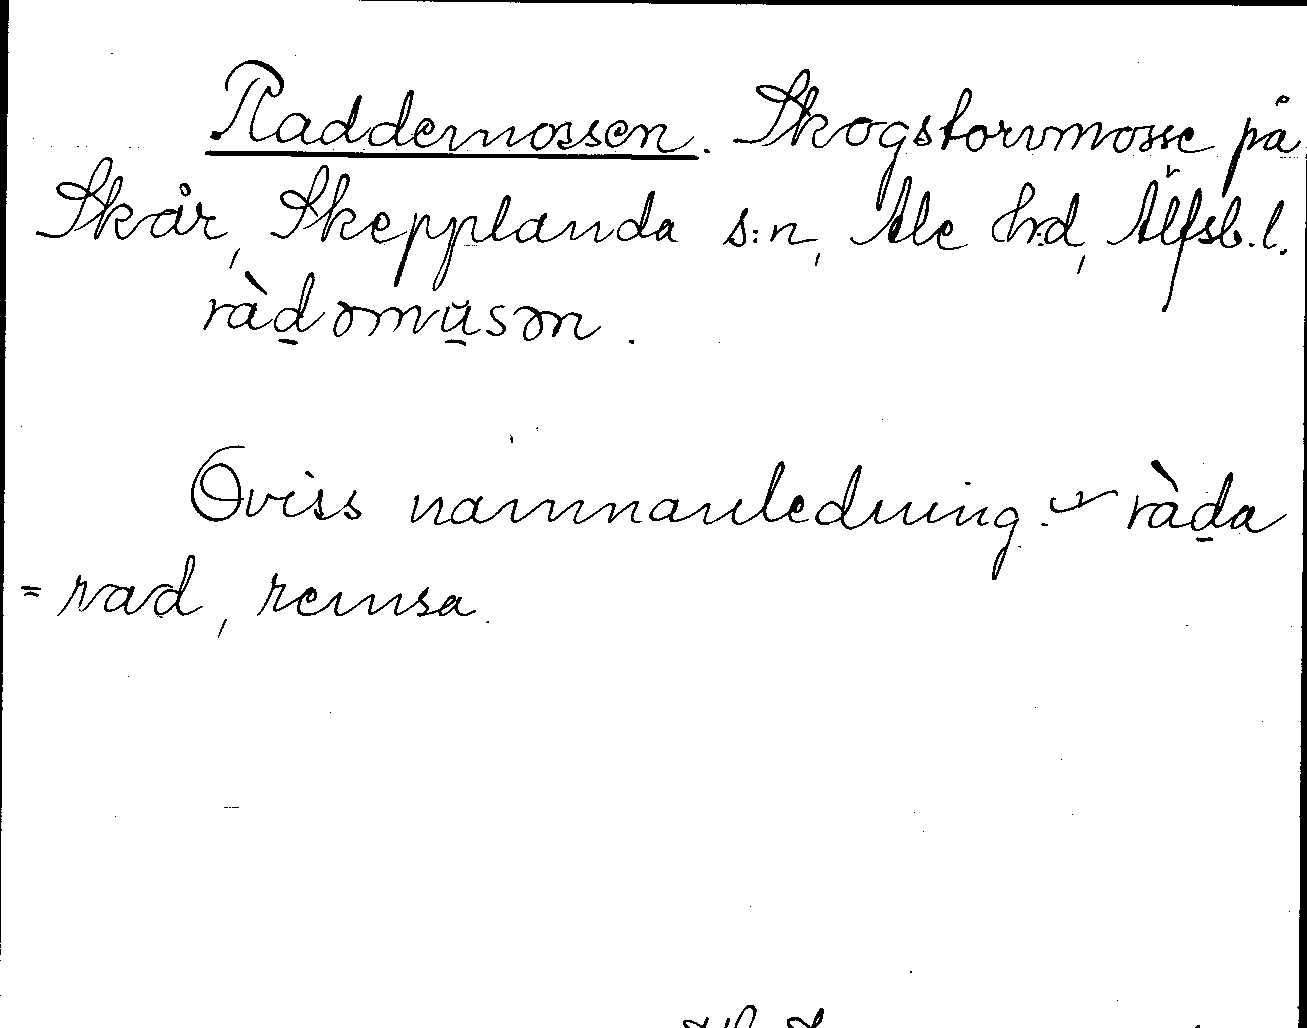 Raddemossen. Skogstorvmosse på
Skår, Skepplanda s:n, Ale h:d, Älfsb. l.
ràd̲əmu̲sən.
Oviss namnanledning. ràd̲a
= rad, remsa.